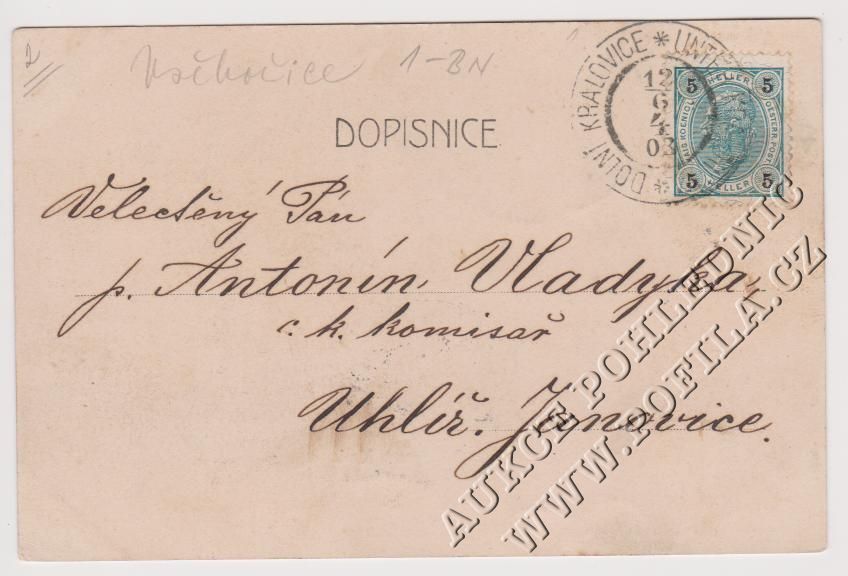 2
1-BN
DOLNÍ KRALOVICE * UNTE
12
6
4
03
5 HELLER 5
5 HELLER 5
OESTERR. POST
DOPISNICE
Velectěný Pán
p. Antonín Vladyka,
c. k. komisař
Uhlíř. Janovice.
AUKCE POHLEDNIC
WWW.POFILA.CZ